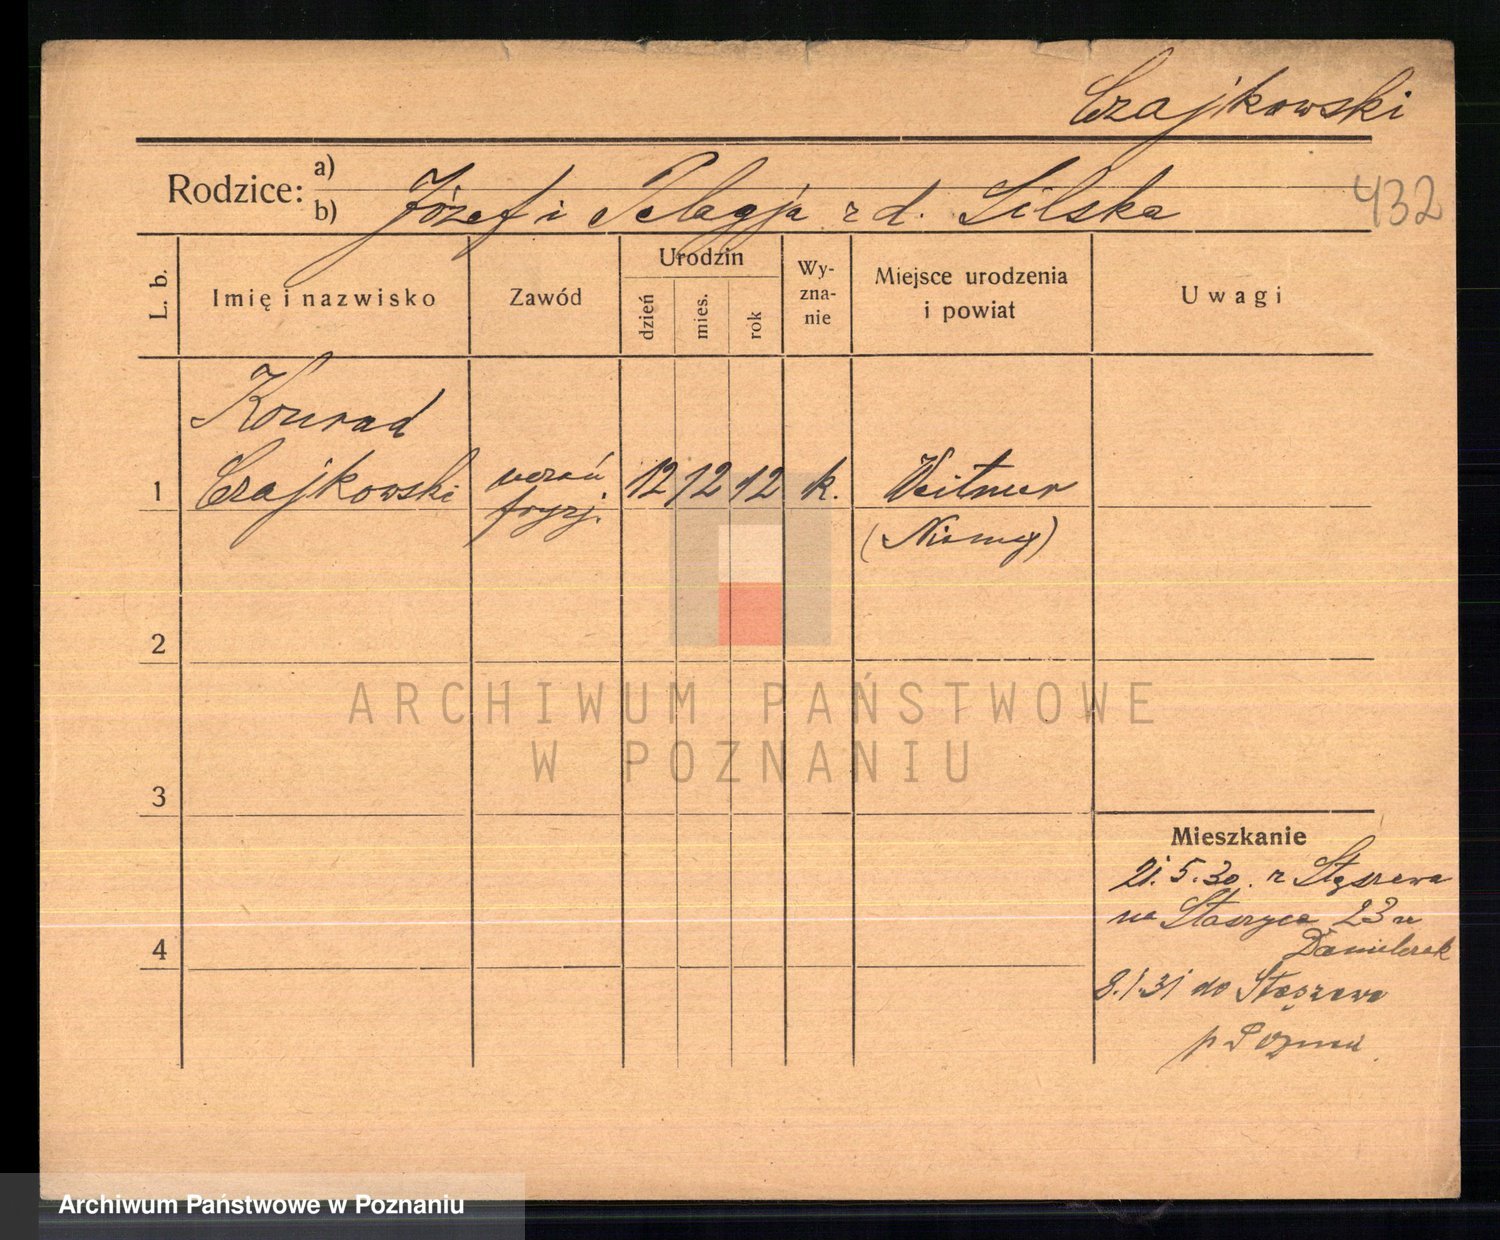 Czajkowski
Rodzice: a)
b) Józef i Pelagja z d. Lilska
432
L. b.
Imię i nazwisko
Zawód
Urodzin
dzień
mies.
rok
Wy-
zna-
nie
Miejsce urodzenia
i powiat
Uwagi
Konrad
1 Czajkowski uczeń 12 12 12 k.
fryzj.
(Niemcy)
2
ARCHIWUM PAŃSTWOWE
W POZNANIU
3
Mieszkanie
21.5.30. z Stęszewa
na Staszyca 23 u
4
8.1.31 do Stęszewa
p. Pozn.
Archiwum Państwowe w Poznaniu